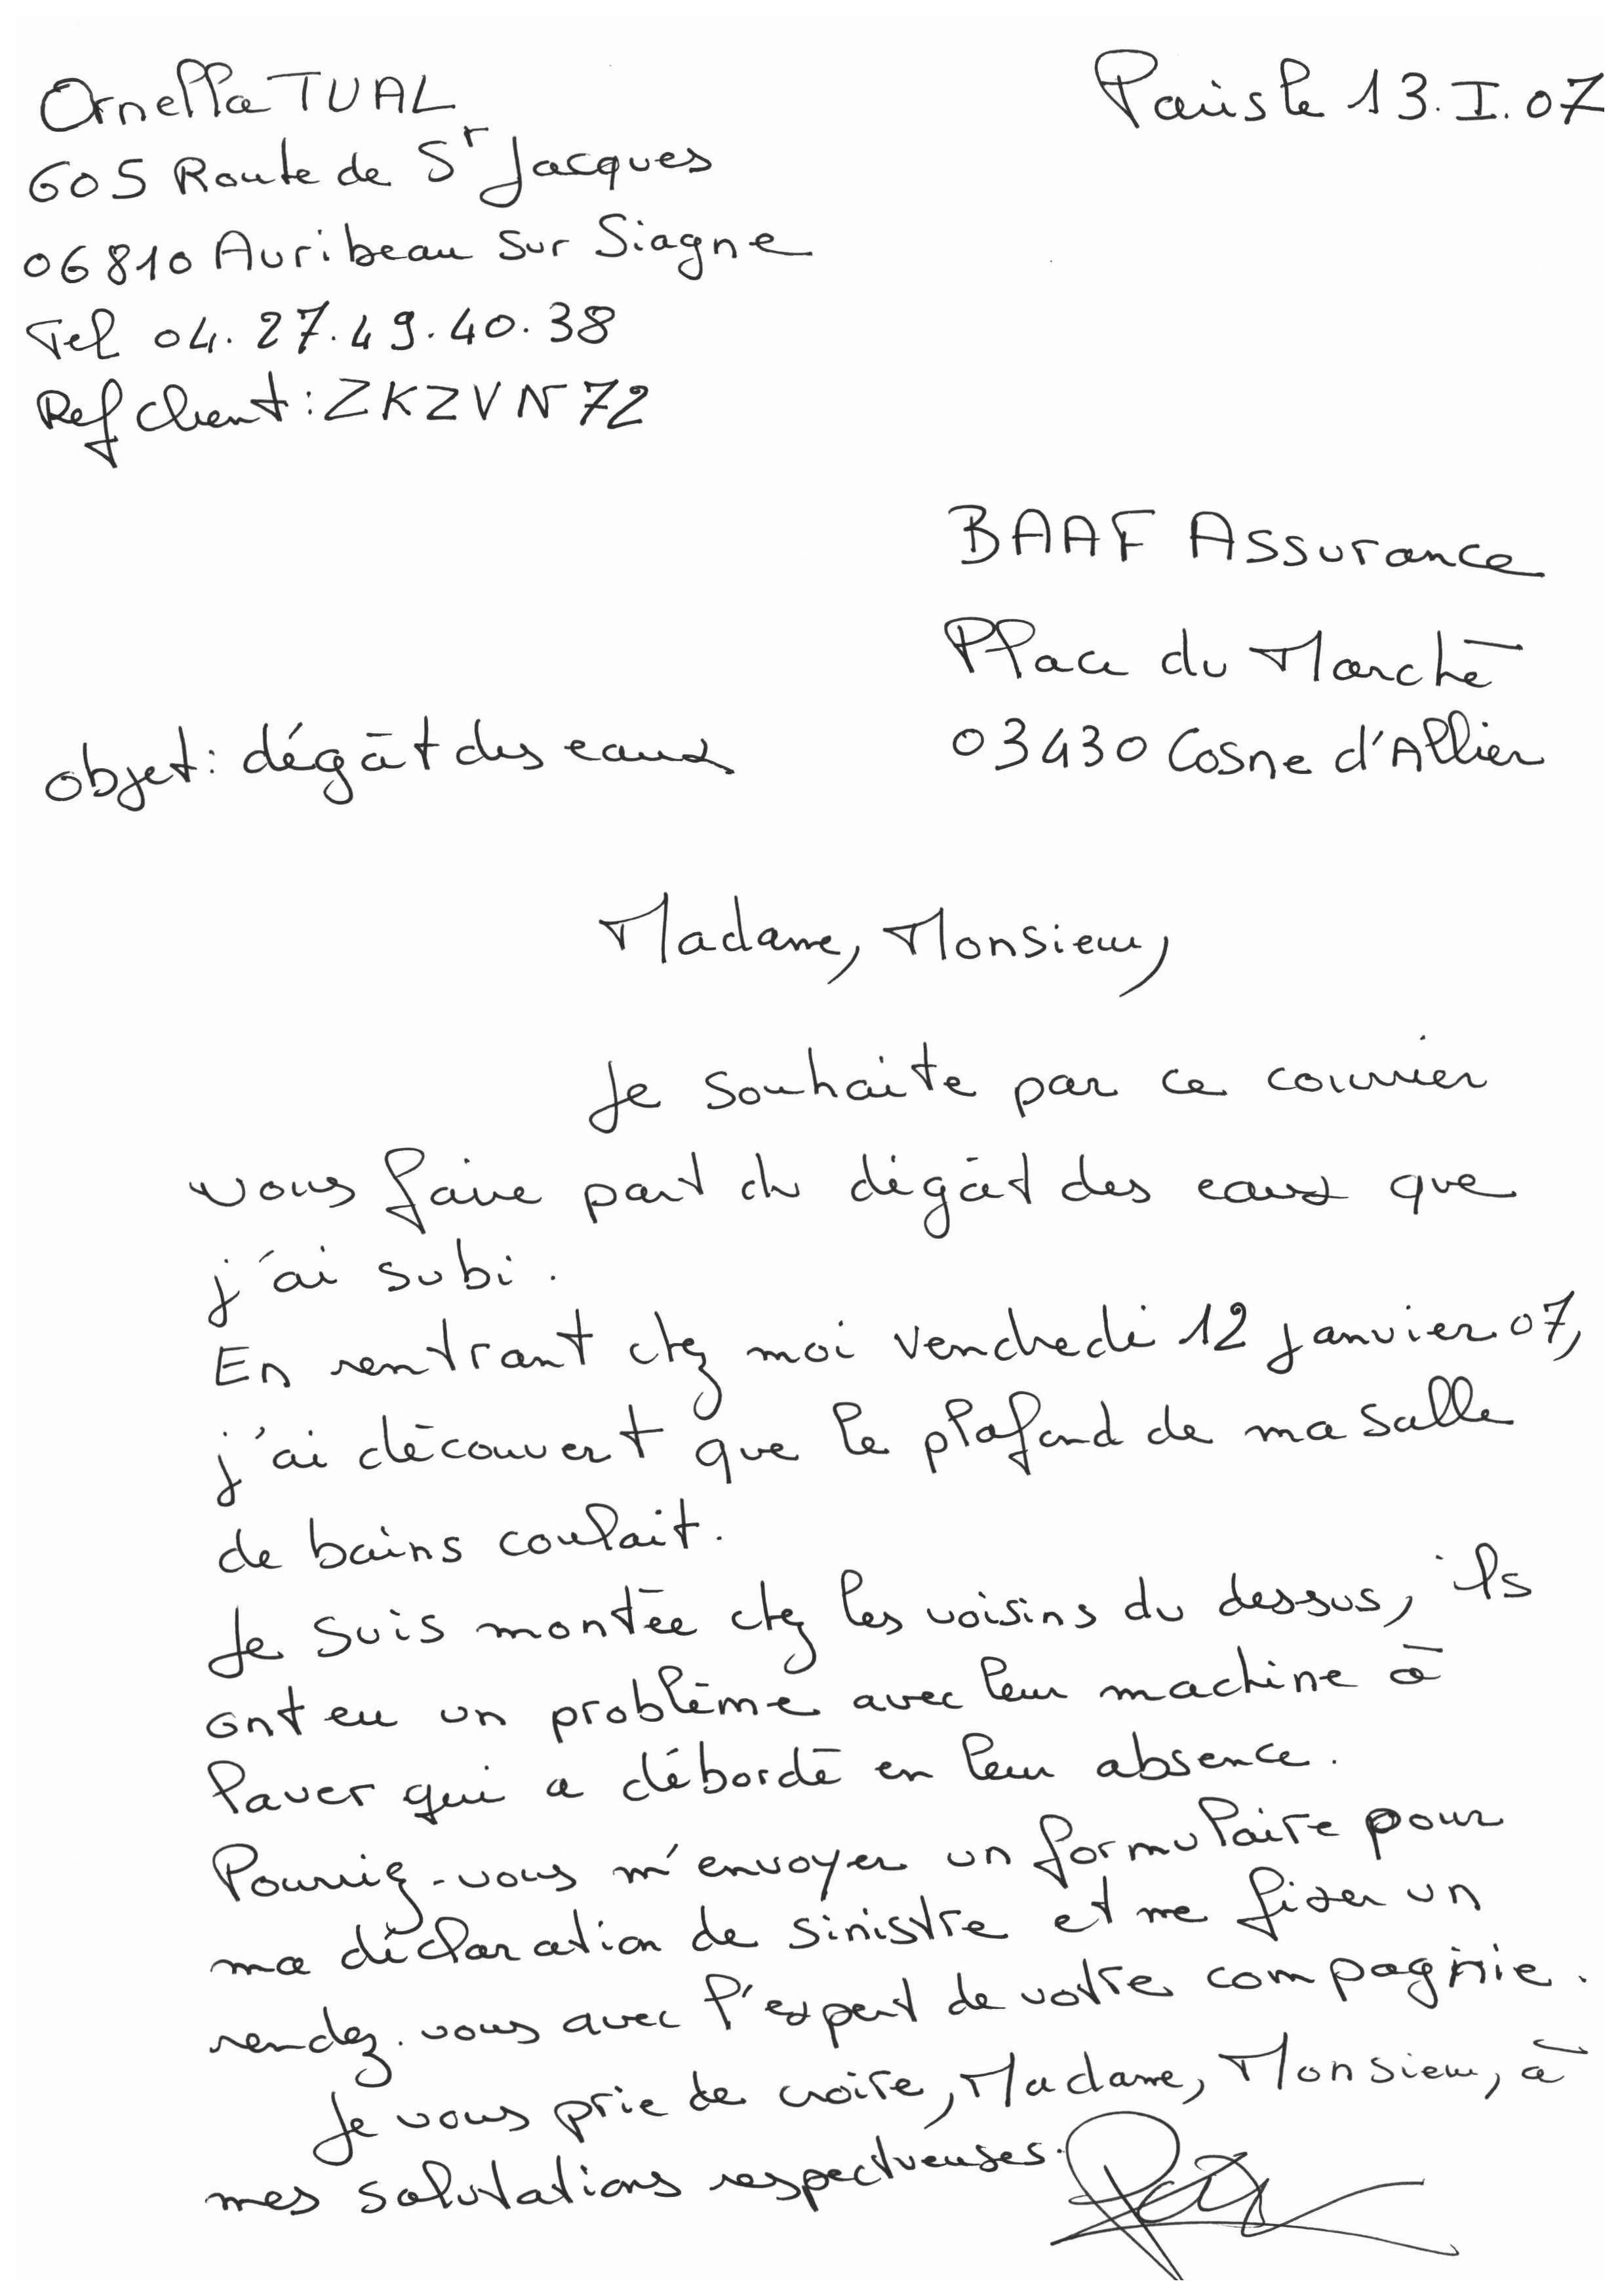 Ornella TUAL
Paris le 13.I.07
605 Route de St Jacques
06810 Auribeau sur Siagne
Tel 04.27.49.40.38
Ref client : ZKZVN72
BAAF Assurance
Place du Marché
03430 Cosne d'Allier
objet : dégât des eaux
Madame, Monsieur,
Je souhaite par ce courrier
vous faire part du dégât des eaux que
j'ai subi.
En rentrant chez moi vendredi 12 janvier 07,
j'ai découvert que le plafond de ma salle
de bains coulait.
Je suis montée chez les voisins du dessus, ils
ont eu un problème avec leur machine à
laver qui a débordé en leur absence.
Pourriez-vous m'envoyer un formulaire pour
ma déclaration de sinistre et me fixer un
rendez-vous avec l'expert de votre compagnie.
Je vous prie de croire, Madame, Monsieur, à
mes salutations respectueuses.